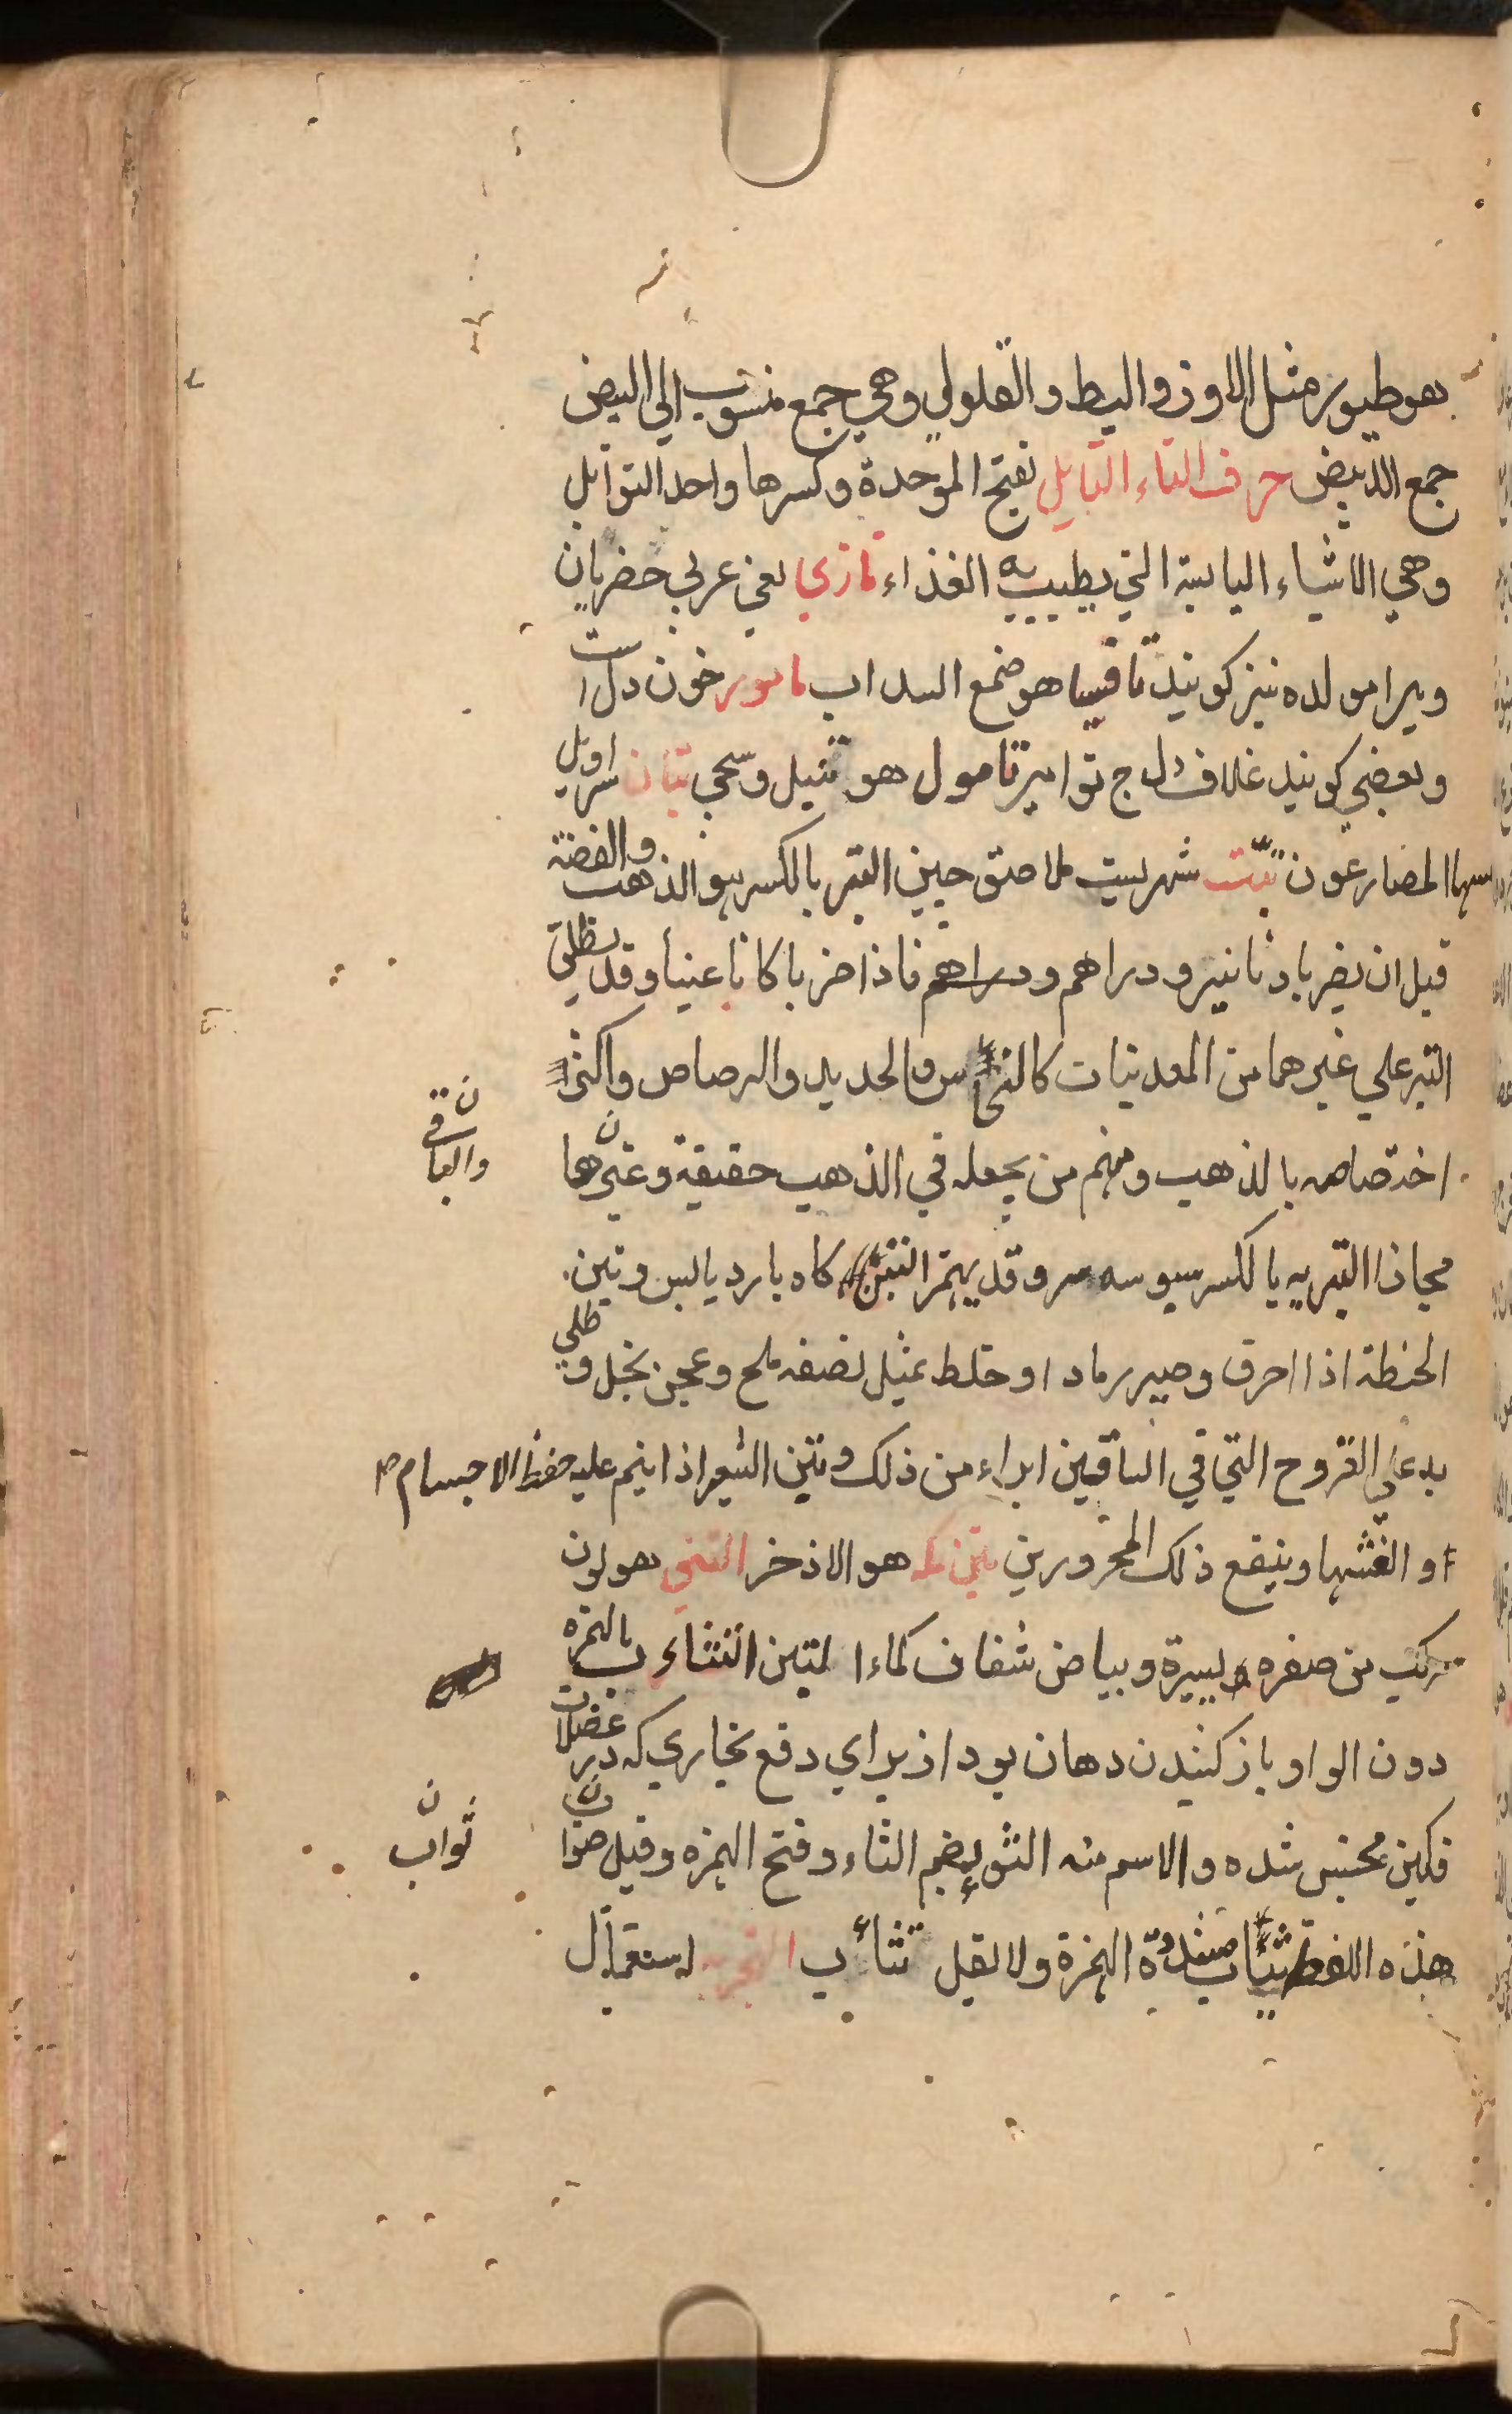 هو طيور مثل الاوز والبط والقلولي وهي جمع منسوب الي البيض
جمع الابيض حرف التاء التابل بفتح الموحدة وكسرها واحد التوابل
وهي الاشياء اليابسة التي يطيب به الغذاء تازي يعني عربي حضريان
ويرا مولده نيز كويند تافسيا هو صمغ السداب تامور خون دل است
وبعضي كويند غلاف دل ج توامير تامول هو تنبل وسجي تبان سراويل
يلبسها المصارعون تبّت شهريست ملاصق جين التبر بالكسر هو الذهب والفضة
قبل ان يضربا دنانير ودراهم ودراهم فاذا ضربا كانا عينا وقد يطلق
التبر علي غيرهما من المعدنيات كالنحاس والحديد والرصاص واكثر
اختصاصه بالذهب ومنهم من يجعله في الذهب حقيقة وغيرها
والباقي ن
مجازا التبريه بالكسر سبوسه سر وقد يهمز التبن كاه بارد يابس وتبن
الحنطة اذا احرق وصير رمادا وخلط بمثل نصفه ملح وعجن بخل وطلي
به علي القروح التي في الساقين ابراء من ذلك وتبن الشعير اذا ينم عليه حفظ الاجسام
او انغشها وينفع ذلك المحرورين تبن مكه هو الاذخر التبني هو لون
مركب من صفره يسيرة وبياض شفاف كماء التبن التثاءب بالهمزه
دون الواو باز كشيدن دهان بود از براي دفع بخاري كه در عضلات
فكين محتبس شده والاسم منه الثوباء بضم الثاء وفتح الهمزه وقيل صواب
ثواب ن
هذه اللفظ تثأب مشددة الهمزة ولا يقل تثاءب التجربه استعمال